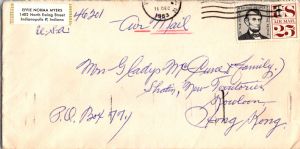 EFFIE NORMA MYERS
1402 North Ewing Street
Indianapolis 1, Indiana
46201
U.S.A
Air Mail
1963
US
AIR MAIL
25
Mrs. Gladys McClure (& family)
Shatin, New Territories
Kowloon
Hong Kong.
P.O. Box